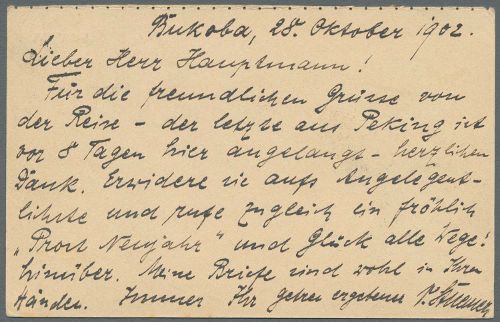 Bukoba, 28. Oktober 1902.
Lieber Herr Hauptmann!
Für die freundlichen Grüsse von
der Reise – der letzte aus Peking ist
vor 8 Tagen hier angelangt – herzlichen
Dank. Erwidere sie aufs Angelegent-
lichste und rufe zugleich ein fröhlich
„Prost Neujahr" und Glück alle Wege!
hinüber. Meine Briefe sind wohl in Ihren
Händen. Immer Ihr getreu ergebener